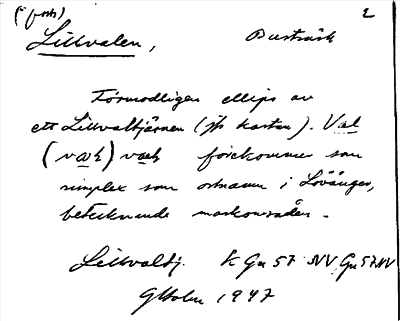 (i forts) 2
Lillvalen, Burträsk
Förmodligen ellips av
ett Lillvaltjärnen (jfr kartan). Val
förekommer som
simplex som ortnamn i Lövånger,
betecknande markområden.
Lillvaltj. K Gu 57 NV Gu 57 NV
GHolm 1947